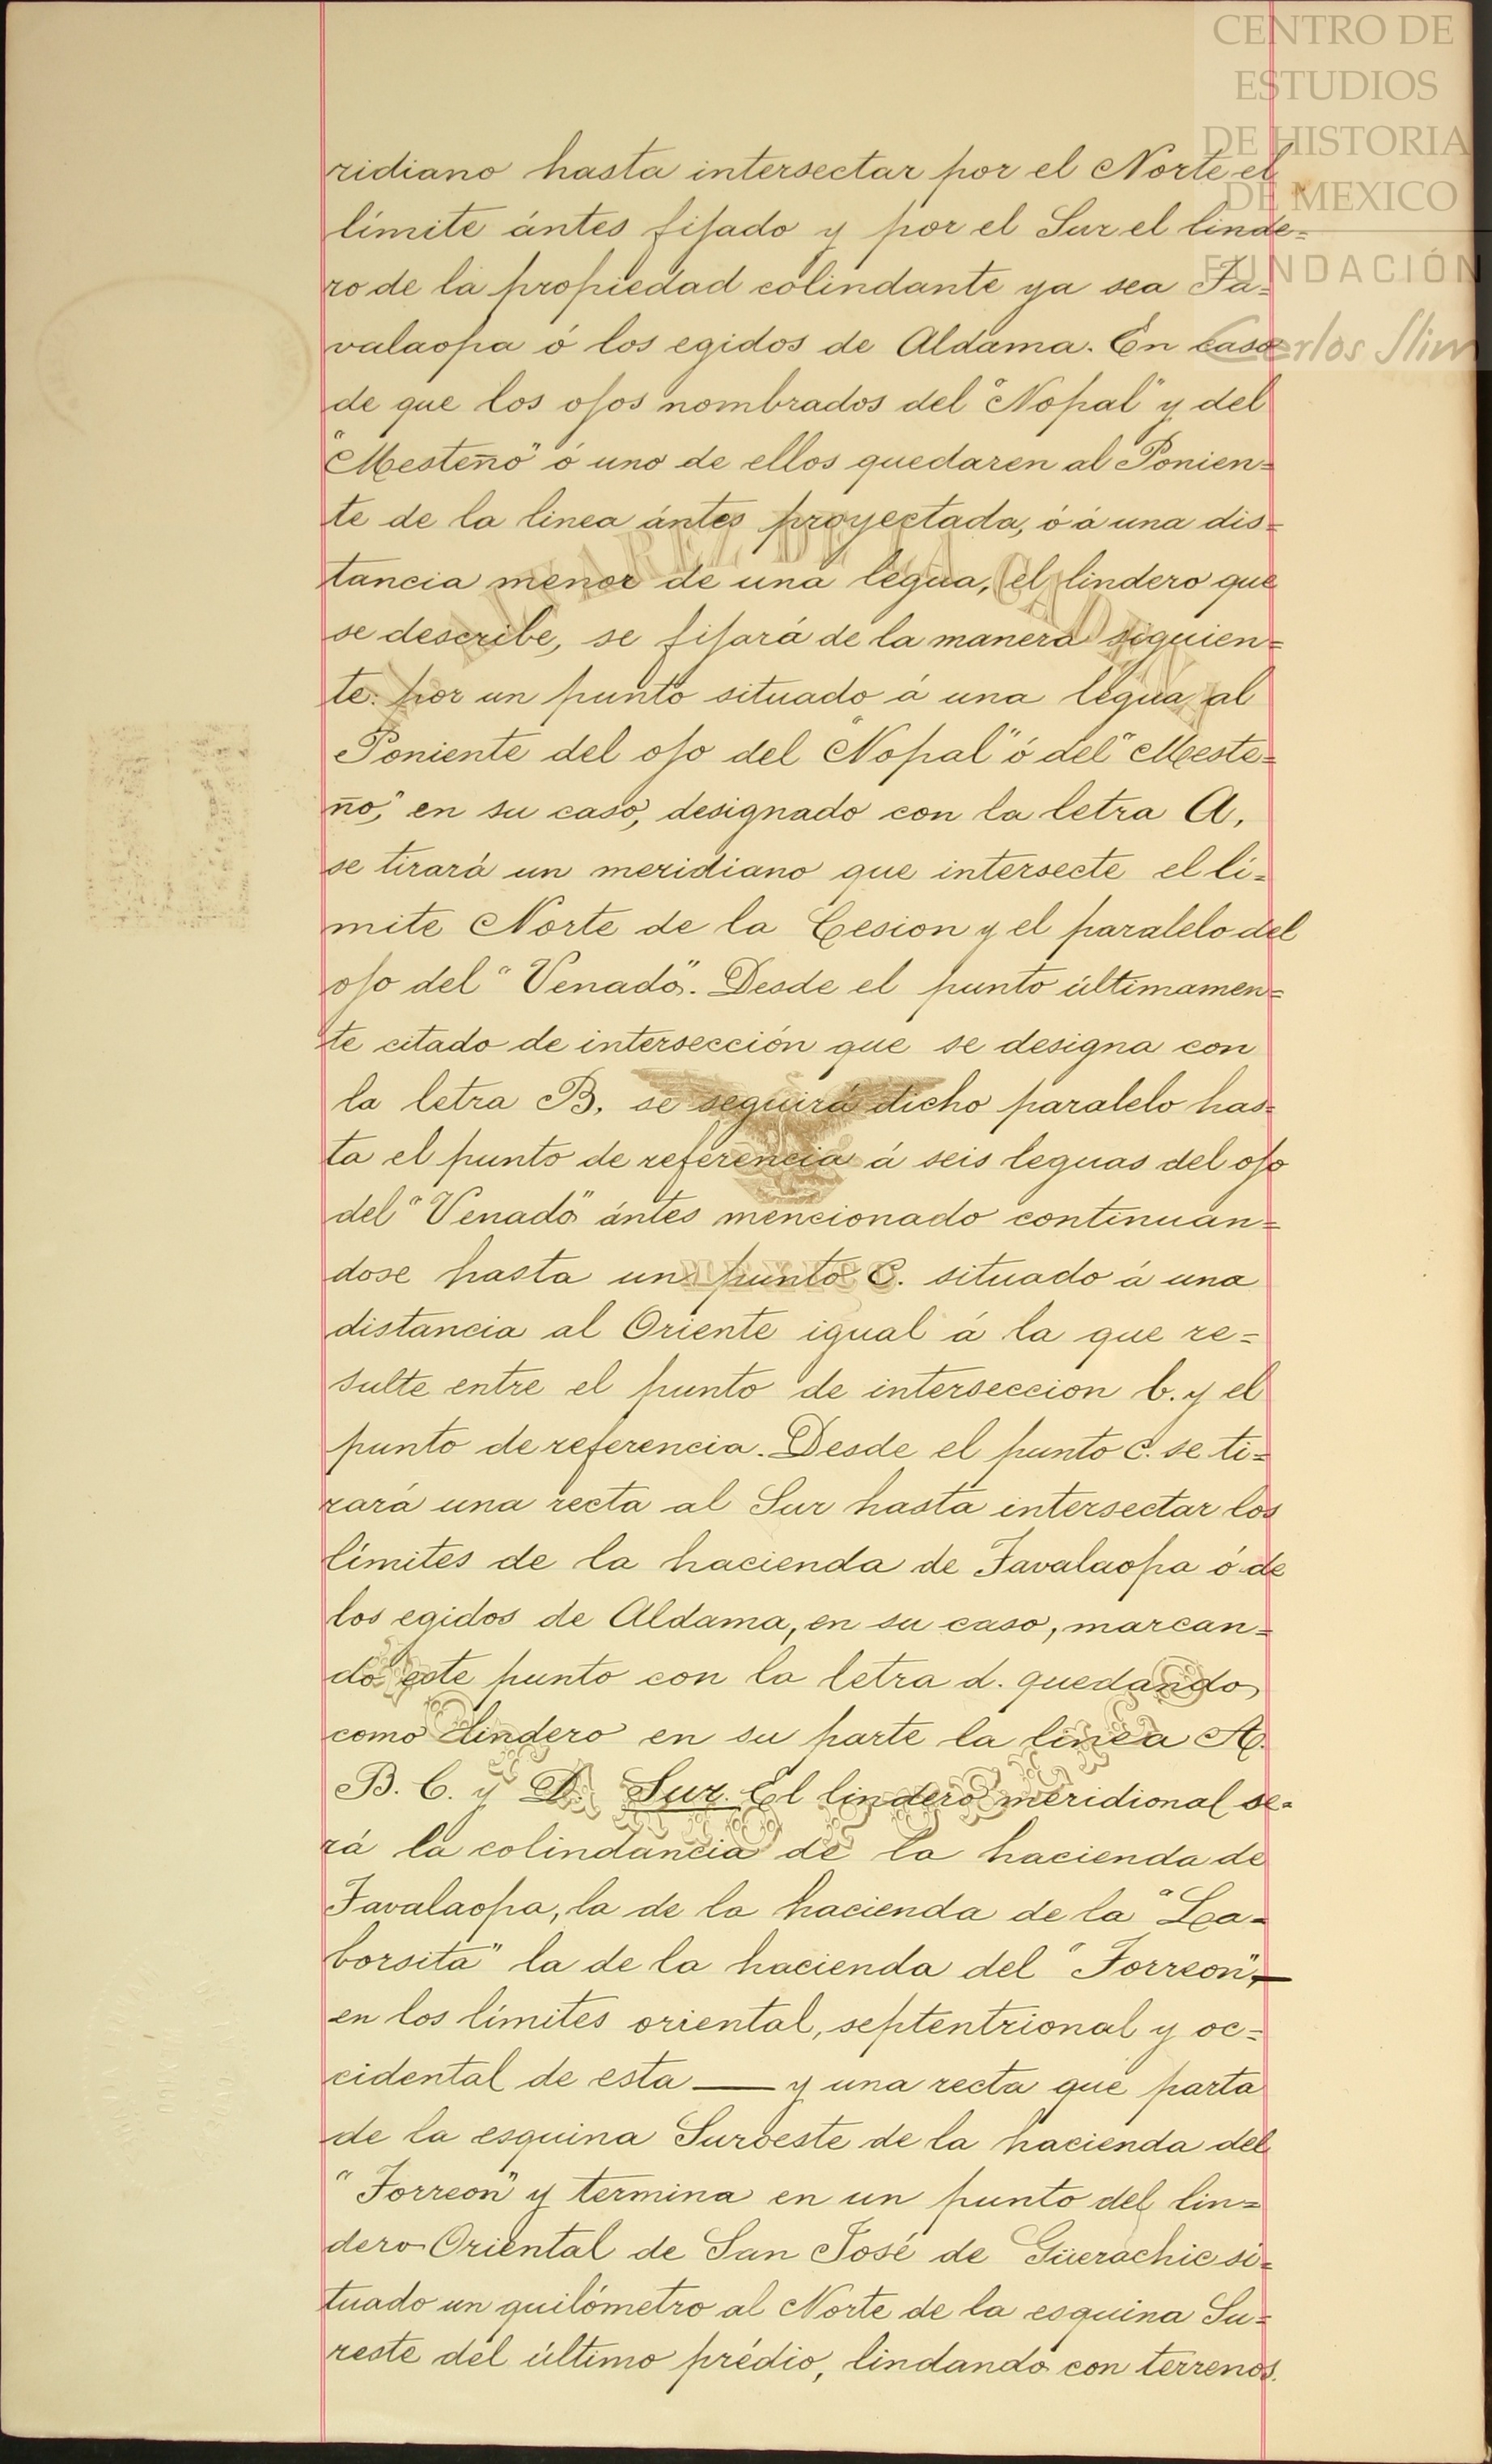 CENTRO DE
ESTUDIOS
DE HISTORIA
DE MEXICO
FUNDACIÓN
Carlos Slim
ridiano hasta intersectar por el Norte el
límite ántes fijado y por el Sur el linde=
ro de la propiedad colindante ya sea Ta-
valaopa ó los egidos de Aldama. En caso
de que los ojos nombrados del "Nopal" y del
"Mesteño" ó uno de ellos quedaren al Ponien=
te de la linea ántes proyectada, ó á una dis=
tancia menor de una legua, el lindero que
se describe, se fijará de la manera siguien=
te: por un punto situado á una legua al
Poniente del ojo del "Nopal" ó del "Meste=
ño," en su caso, designado con la letra A,
se tirará un meridiano que intersecte el lí=
mite Norte de la Cesion y el paralelo del
ojo del "Venado". Desde el punto últimamen=
te citado de intersección que se designa con
la letra B, se seguirá dicho paralelo has=
ta el punto de referencia á seis leguas del ojo
del "Venado" ántes mencionado continuan=
dose hasta un punto C. situado á una
distancia al Oriente igual á la que re=
sulte entre el punto de interseccion b. y el
punto de referencia. Desde el punto C. se ti=
rará una recta al Sur hasta intersectar los
límites de la hacienda de Tavalaopa ó de
los egidos de Aldama, en su caso, marcan=
do este punto con la letra d. quedando
como lindero en su parte la linea A.
B. C. y D. Sur. El lindero meridional se=
rá la colindancia de la hacienda de
Tavalaopa, la de la hacienda de la "La=
borsita" la de la hacienda del "Torreon",—
en los límites oriental, septentrional y oc=
cidental de esta — y una recta que parta
de la esquina Suroeste de la hacienda del
"Torreon" y termina en un punto del lin=
dero Oriental de San José de Güerachic si=
tuado un quilómetro al Norte de la esquina Su=
reste del último prédio, lindando con terrenos.
MEXICO